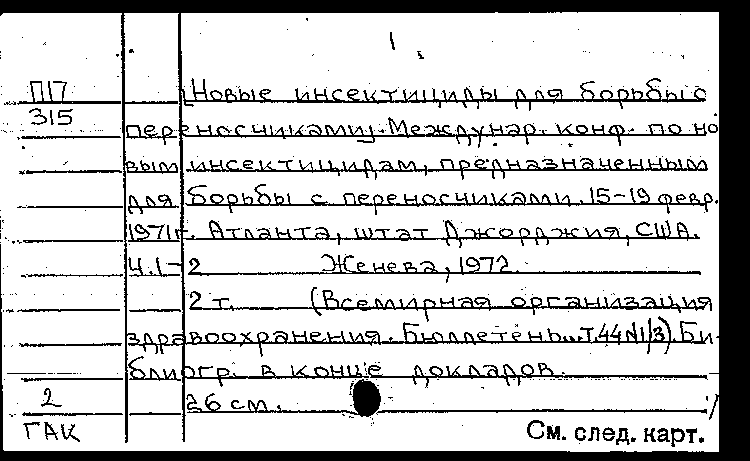 1
П17 [Новые инсектициды для борьбы с
315 переносчиками]. Междунар. конф. по но
вым инсектицидам, предназначенным
для борьбы с переносчиками. 15-19 февр.
1971г. Атланта, штат Джорджия, США.
Ч.1-2 Женева, 1972.
2 т. (Всемирная организация
здравоохранения. Бюллетень... Т.44 N1/3). Би-
блиогр. в конце докладов.
2 26 см.
ГАК См. след. карт.